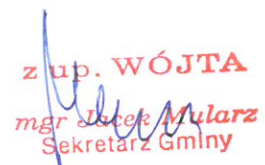 z up. WÓJTA
mgr Jacek Mularz
Sekretarz Gminy